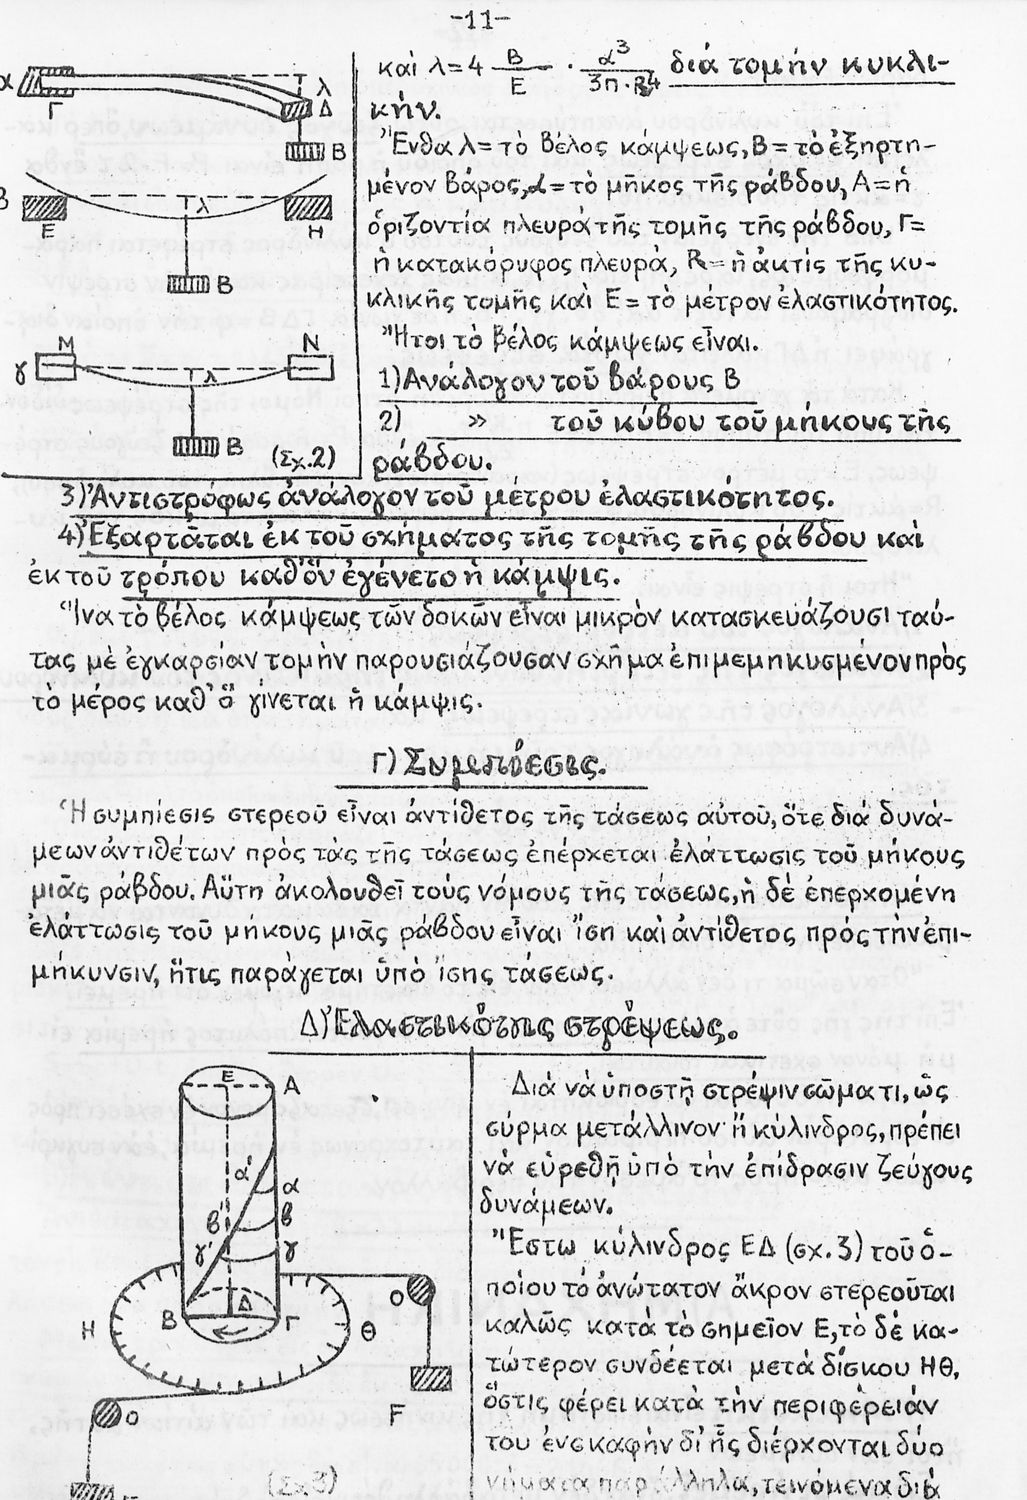 -11-
καὶ λ=4 Β/Ε · α³/3π·R⁴ διά τομήν κυκλι-
κήν.
Ἔνθα λ=τὸ βέλος κάμψεως, Β=τὸ ἐξηρτη-
μένον βάρος, α=τὸ μῆκος τῆς ράβδου, Α=ἡ
ὁριζοντία πλευρά τῆς τομῆς τῆς ράβδου, Γ=
ἡ κατακόρυφος πλευρά, R=ἡ ἀκτίς τῆς κυ-
κλικῆς τομῆς καὶ Ε=τὸ μέτρον ελαστικότητος.
Ἤτοι τὸ βέλος κάμψεως εἶναι.
1)Ανάλογον τοῦ βάρους Β
2) » τοῦ κύβου τοῦ μήκους τῆς
ράβδου.
α
Γ
λ
Δ
Β
β
Ε
λ
Η
Β
γ
Μ
Ν
λ
Β
(Σχ.2)
3)Ἀντιστρόφως ἀνάλογον τοῦ μέτρου ἐλαστικότητος.
4)Ἐξαρτᾶται ἐκ τοῦ σχήματος τῆς τομῆς τῆς ράβδου καὶ
ἐκ τοῦ τρόπου καθ' ὅν ἐγένετο ἡ κάμψις.
Ἵνα τὸ βέλος κάμψεως τῶν δοκῶν εἶναι μικρὸν κατασκευάζουσι ταύ-
τας μὲ ἐγκαρσίαν τομὴν παρουσιάζουσαν σχῆμα ἐπιμεμηκυσμένον πρὸς
τὸ μέρος καθ' ὅ γίνεται ἡ κάμψις.
Γ) Συμπίεσις.
Ἡ συμπίεσις στερεοῦ εἶναι ἀντίθετος τῆς τάσεως αὐτοῦ, ὅτε διά δυνά-
μεων ἀντιθέτων πρὸς τάς τῆς τάσεως ἐπέρχεται ἐλάττωσις τοῦ μήκους
μιᾶς ράβδου. Αὕτη ἀκολουθεῖ τοὺς νόμους τῆς τάσεως, ἡ δὲ ἐπερχομένη
ἐλάττωσις τοῦ μηκους μιᾶς ράβδου εἶναι ἴση καὶ ἀντίθετος πρὸς τὴν ἐπι-
μήκυνσιν, ἥτις παράγεται ὑπό ἴσης τάσεως.
Δ)Ἐλαστικότης στρέψεως.
Διά νὰ ὑποστῇ στρέψιν σῶμα τι, ὡς
σύρμα μετάλλινον ἤ κύλινδρος, πρέπει
νὰ εὑρεθῇ ὑπὸ τὴν ἐπίδρασιν ζεύγους
δυνάμεων.
Ἔστω κύλινδρος ΕΔ (σχ.3) τοῦ ὁ-
ποίου τὸ ἀνώτατον ἄκρον στερεοῦται
καλῶς κατὰ το σημεῖον Ε, τὸ δὲ κα-
τώτερον συνδέεται μετά δίσκου ΗΘ,
ὅστις φέρει κατὰ τὴν περιφέρειάν
του ἐνσκαφὴν δἰ ἧς διέρχονται δύο
νήματα παράλληλα, τεινόμενα διά
Ε
Α
α'
α
β'
β
γ'
γ
Η
Β
Δ
Γ
Θ
Ο
Ο
F
(Σχ.3)